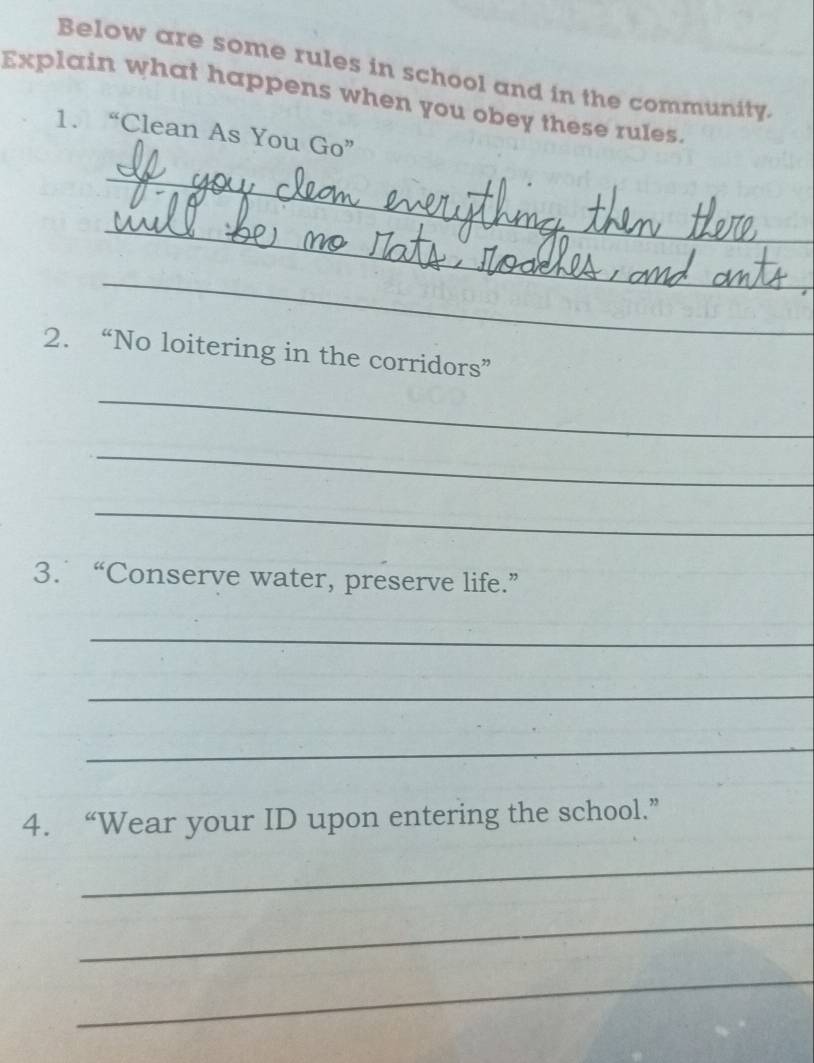 Below are some rules in school and in the community.
Explain what happens when you obey these rules.
1. “Clean As You Go”
If you clean everything, then there
will be no rats, roaches, and ants.
2. “No loitering in the corridors”
3. “Conserve water, preserve life.”
4. “Wear your ID upon entering the school.”